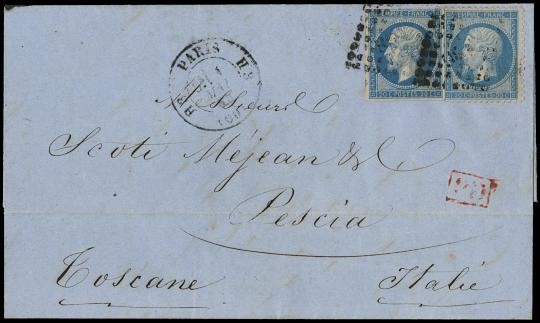 EMPIRE FRANC EMPIRE FRANC
20 C POSTES 20 C 20 C POSTES 20 C
PARIS
(60)
Messieurs
Scoti Méjean & C
Pescia
Toscane Italie